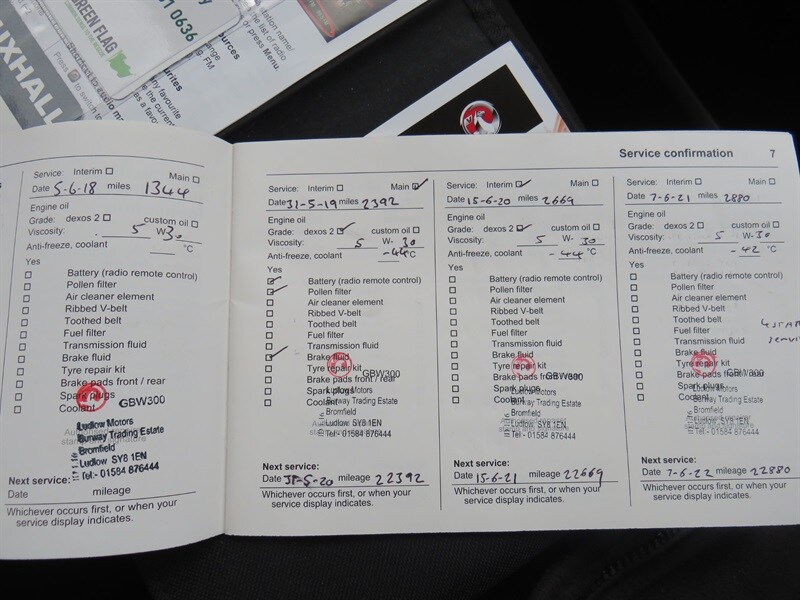 1 0636
GREEN FLAG
VAUXHALL
or press Menu.
Service confirmation 7
Service: Interim Main
Date 5-6-18 miles 1344
Engine oil
Grade: dexos 2 custom oil
Viscosity: 5 W- 30
Anti-freeze, coolant °C
Yes
Battery (radio remote control)
Pollen filter
Air cleaner element
Ribbed V-belt
Toothed belt
Fuel filter
Transmission fluid
Brake fluid
Tyre repair kit
Brake pads front / rear
Spark plugs
Coolant
GBW300
Ludlow Motors
Burway Trading Estate
Bromfield
Ludlow SY8 1EN
Tel:- 01584 876444
Next service:
Date mileage
Whichever occurs first, or when your
service display indicates.
Service: Interim Main ✓
Date 31-5-19 miles 2392
Engine oil
Grade: dexos 2 ✓ custom oil
Viscosity: 5 W- 30
Anti-freeze, coolant -44 °C
Yes
✓ Battery (radio remote control)
✓ Pollen filter
Air cleaner element
Ribbed V-belt
Toothed belt
Fuel filter
Transmission fluid
✓ Brake fluid
Tyre repair kit
Brake pads front / rear
Spark plugs
Coolant
GBW300
Ludlow Motors
Burway Trading Estate
Bromfield
Ludlow SY8 1EN
Tel:- 01584 876444
Next service:
Date 31-5-20 mileage 22392
Whichever occurs first, or when your
service display indicates.
Service: Interim ✓ Main
Date 15-6-20 miles 2669
Engine oil
Grade: dexos 2 ✓ custom oil
Viscosity: 5 W- 30
Anti-freeze, coolant -44 °C
Yes
Battery (radio remote control)
Pollen filter
Air cleaner element
Ribbed V-belt
Toothed belt
Fuel filter
Transmission fluid
Brake fluid
Tyre repair kit
Brake pads front / rear
Spark plugs
Coolant
GBW300
Ludlow Motors
Burway Trading Estate
Bromfield
Ludlow SY8 1EN
Tel:- 01584 876444
Next service:
Date 15-6-21 mileage 22669
Whichever occurs first, or when your
service display indicates.
Service: Interim Main
Date 7-6-21 miles 2880
Engine oil
Grade: dexos 2 custom oil
Viscosity: 5 W- 30
Anti-freeze, coolant -42 °C
Yes
Battery (radio remote control)
Pollen filter
Air cleaner element
Ribbed V-belt
Toothed belt
Fuel filter
Transmission fluid
Brake fluid
Tyre repair kit
Brake pads front / rear
Spark plugs
Coolant
GBW300
Ludlow Motors
Burway Trading Estate
Bromfield
Ludlow SY8 1EN
Tel:- 01584 876444
Next service:
Date 7-6-22 mileage 22880
Whichever occurs first, or when your
service display indicates.